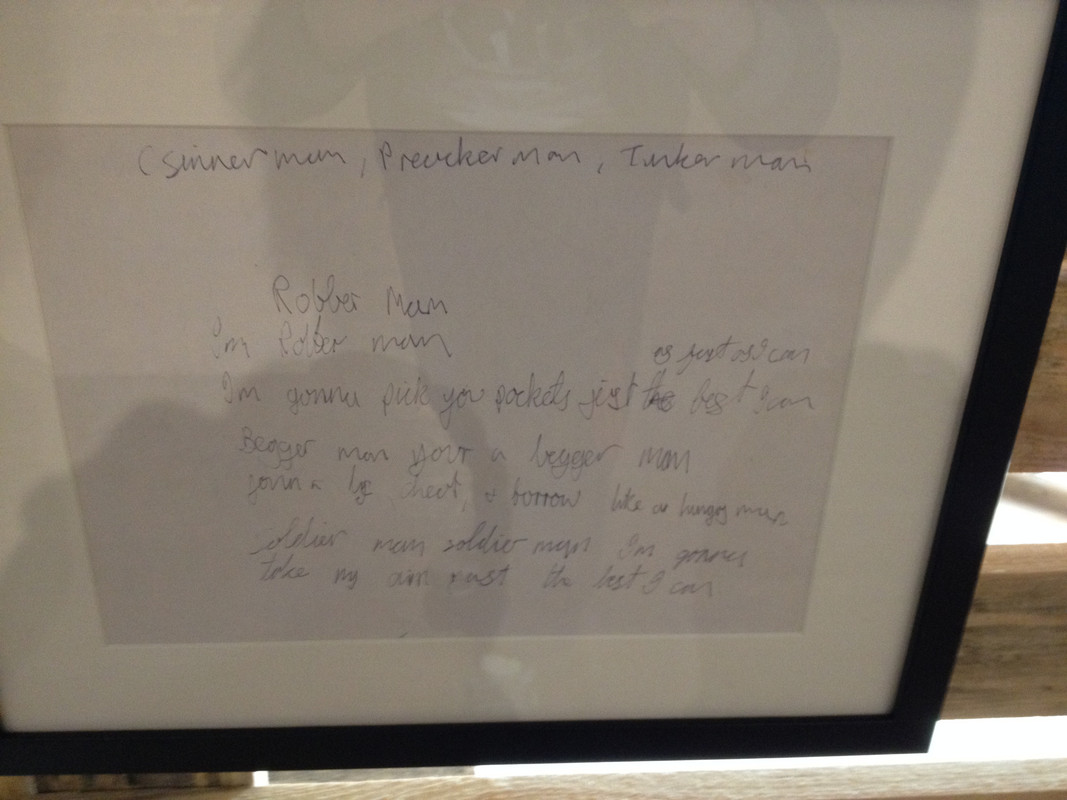 (Sinner man, Preacker man, Tinker man
Robber Man
I'm Robber man
as fast as I can
I'm gonna pick your pockets just the best I can
Begger man your a begger man
gonna beg cheat, & borrow like a hungry man
soldier man soldier man I'm gonna
take my aim just the best I can